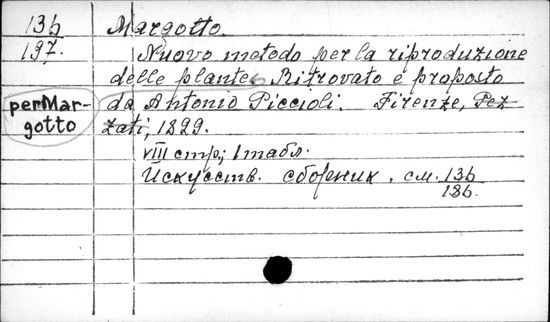 13b
197.
perMar-
gotto
Margotto.
Nuovo metodo per la riproduzione
delle plante. Ritrovato e proposto
da Antonio Piccioli. Firenze, Pez
zati, 1829.
VIII стр; 1 табл.
Искусств. сборник. см. 13b
186.